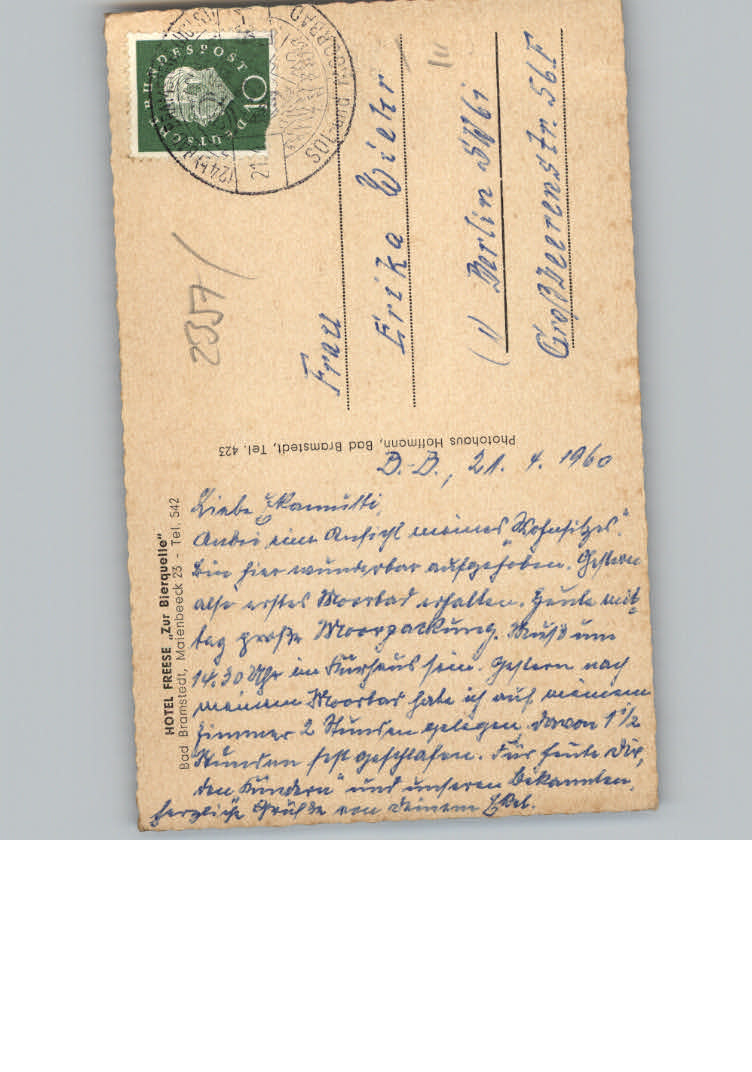 HOTEL FREESE „Zur Bierquelle"
Bad Bramstedt, Maienbeeck 23 - Tel. 542
B.-B., 21. 4. 1960
Liebe
Anbei eine Ansicht meines „Wohnsitzes".
Bin hier wunderbar aufgehoben. Gestern
also erstes Moorbad erhalten. Heute mit=
tag große Moorpackung. Muß um
14.30 Uhr im Kurhaus sein. Gestern nach
meinem Moorbad habe ich auf meinem
Zimmer 2 Stunden gelegen, davon 1 1/2
Stunden fest geschlafen. Für heute Dir,
den Kindern" und unseren Bekannten,
herzliche Grüße von Deinem
Photohaus Hoffmann, Bad Bramstedt, Tel. 423
DEUTSCHE BUNDESPOST
10
SOL- und MOORBAD
2357/
Frau
Erika Wiehr
(1) Berlin SW61
Großbeerenstr. 56F